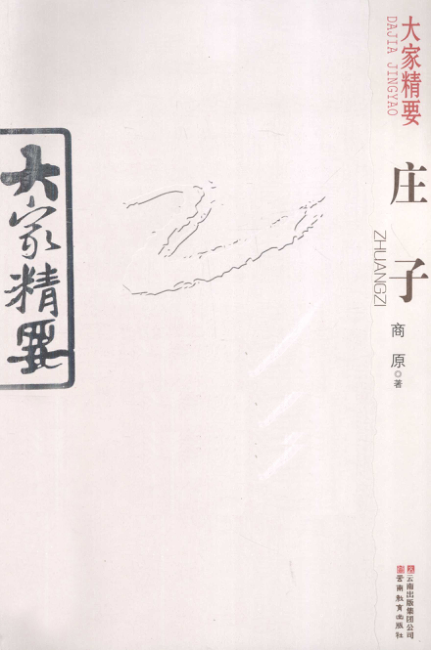 大家精要
DAJIA JINGYAO
庄子
ZHUANGZI
商原◎著
大家精要
云南出版集团公司
云南教育出版社